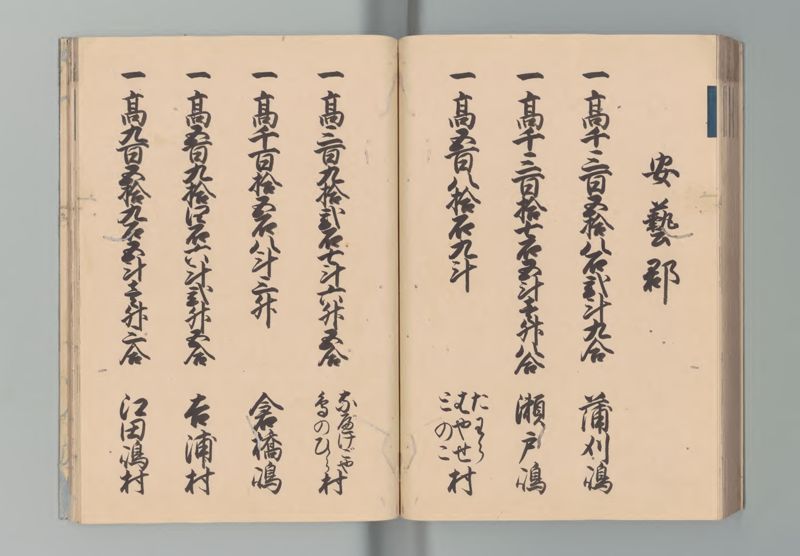 安藝郡
一 高千三百五拾八石弐斗九合 蒲刈嶋
一 高千三百拾七石五斗壱升八合 瀬戸嶋
一 高五百八拾石九斗 たわら むやせ 三のこ 村
一 高三百九拾弐石七斗六升五合 村
一 高千百拾五石八斗三升 倉橋嶋
一 高五百九拾四石六斗弐升五合 吉浦村
一 高九百五拾九石五斗壱升二合 江田嶋村